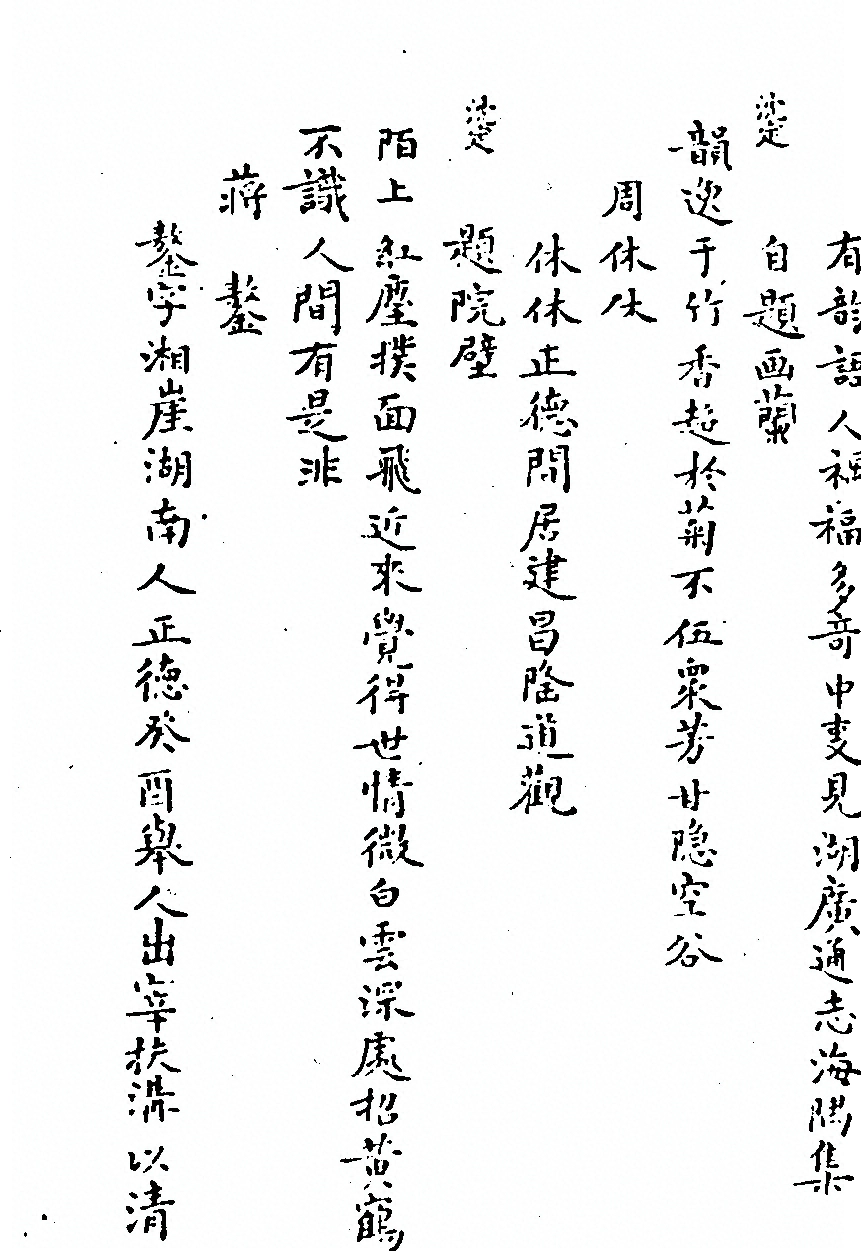 有韵語人禍福多竒中叓見湖廣通志海隅集
自題画蘭
韻逸于竹香超於菊不伍衆芳甘隐空谷
周休休
休休正德間居建昌隆道觀
題院壁
陌上紅塵撲面飛近來覺得世情微白雲深處招黄鶴
不識人間有是非
蔣鏊
鏊字湘崖湖南人正德癸酉舉人出宰扶溝以清